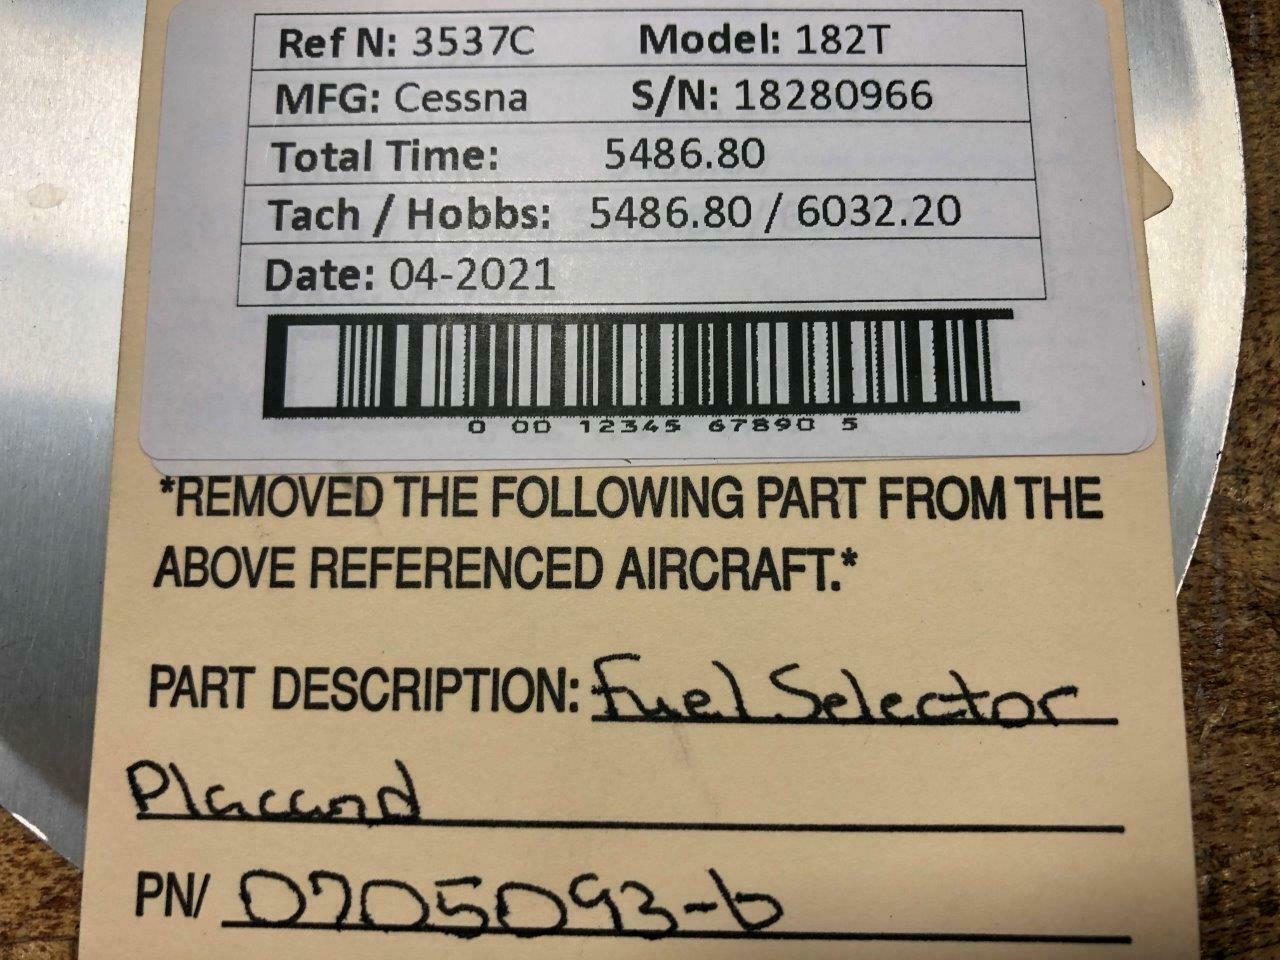 Ref N: 3537C Model: 182T
MFG: Cessna S/N: 18280966
Total Time: 5486.80
Tach / Hobbs: 5486.80 / 6032.20
Date: 04-2021
0 00 12345 67890 5
*REMOVED THE FOLLOWING PART FROM THE
ABOVE REFERENCED AIRCRAFT.*
PART DESCRIPTION: Fuel Selector
Placard
PN/ 0705093-6